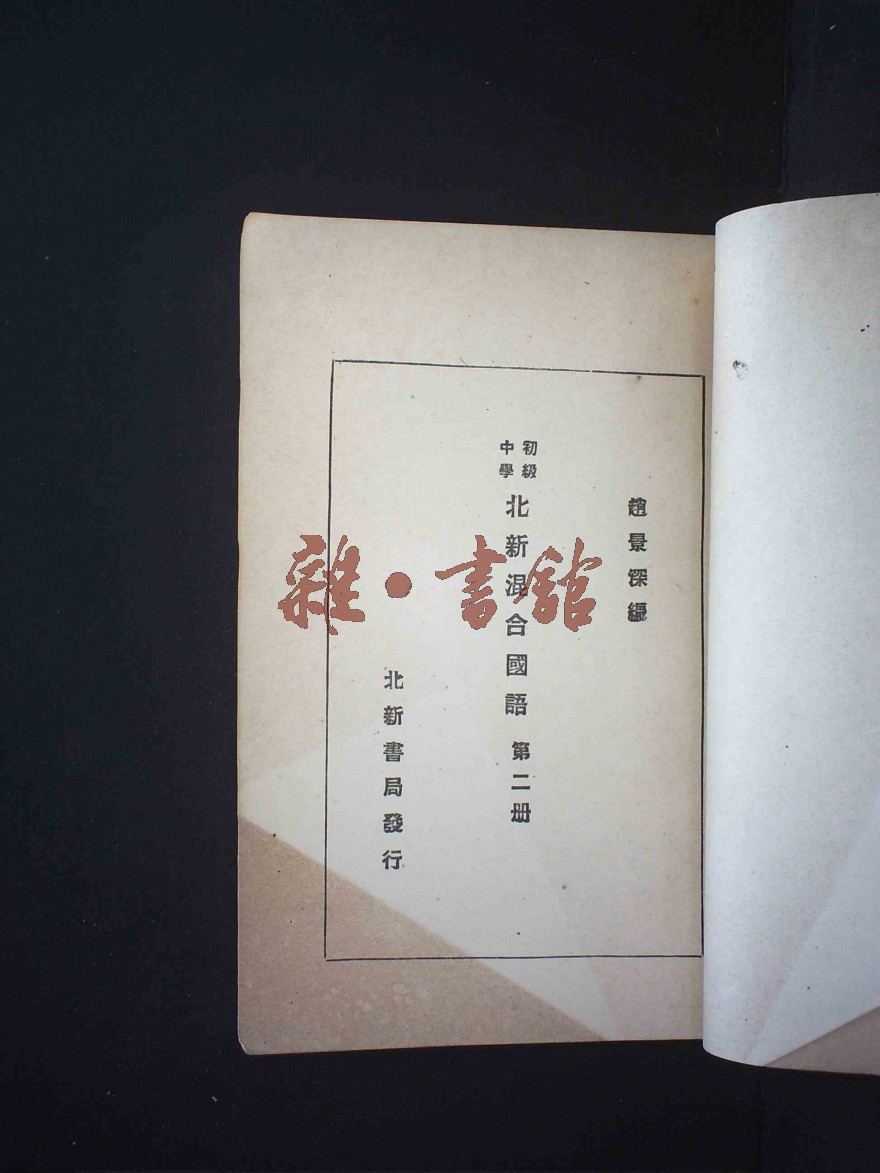 趙景深編
初級中學
北新混合國語 第二册
北新書局發行
雜·書館